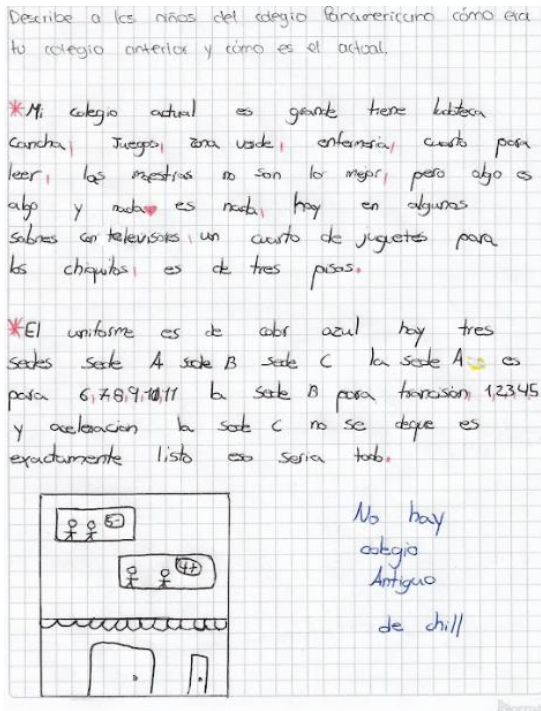 Describe a los niños del colegio Panamericano cómo era
tu colegio anterior y cómo es el actual.
*Mi colegio actual es grande tiene
cancha, Juegos, zona verde, enfermeria, cuarto para
leer, las maestras no son lo mejor, pero algo es
algo y nada es nada, hay en algunos
salones con televisores, un cuarto de juguetes para
los chiquitos, es de tres pisos.
*El uniforme es de color azul hay tres
sedes sede A sede B sede C la sede A es
para 6,7,8,9,10,11 la sede B para transisión, 1,2,3,4,5
y aceleracion la sede C no se deque es
exactamente listo eso seria todo.
5-
4+
No hay
colegio
Antiguo
de chill